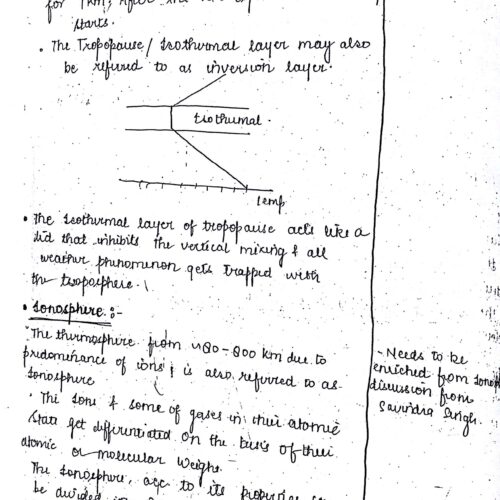 for 1km, After
starts.
• The Tropopause / Isothermal layer may also
be refered to as inversion layer.
Isothermal.
temp
• The Isothermal layer of tropopause acts like a
lid that inhibits the vertical mixing & all
weather phenomenon gets trapped with
the troposphere.
• Ionosphere :-
The thermosphere from 80-800 km due to
predominance of ions, is also referred to as
Ionosphere
• The Ions & some of gases in their atomic
state get differentiated on the basis of their
atomic or molecular weighs.
The Ionosphere, acc to its properties
be divided
- Needs to be
enriched from
discussion from
Savindra Singh.